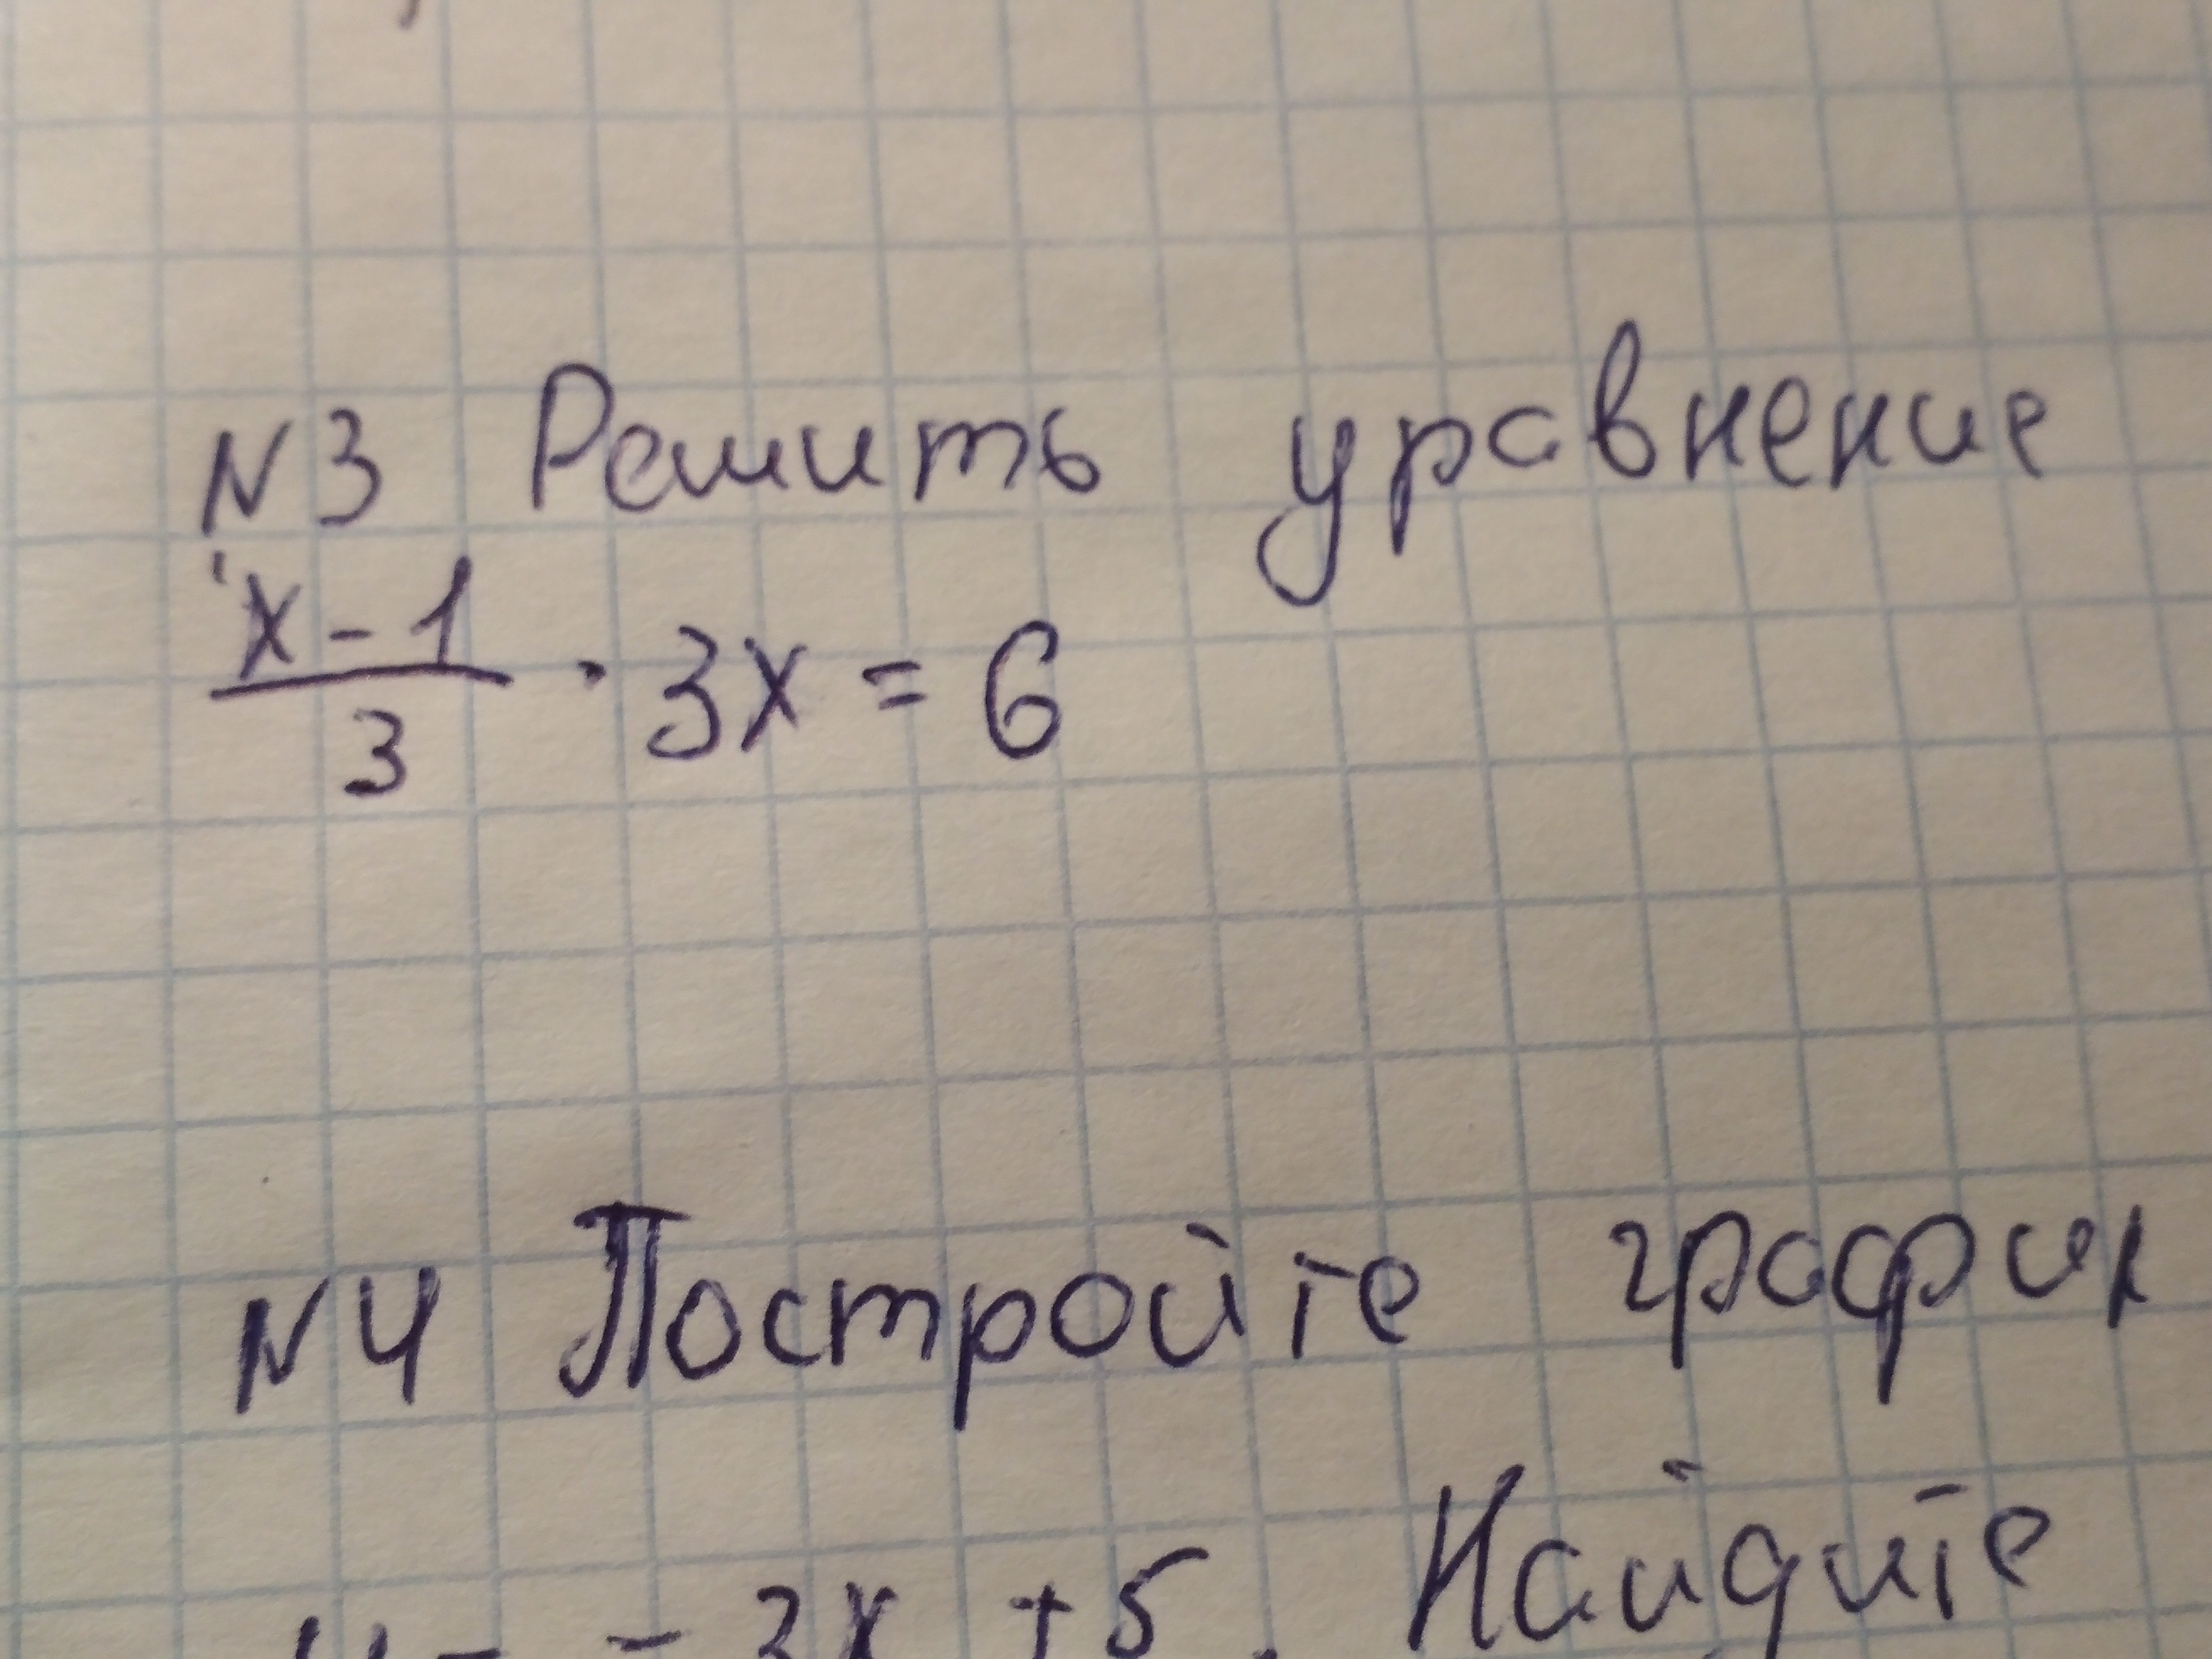 N3 Решить уравнение
x-1/3 · 3x = 6
N4 Постройте график
y = -3x +5. Найдите